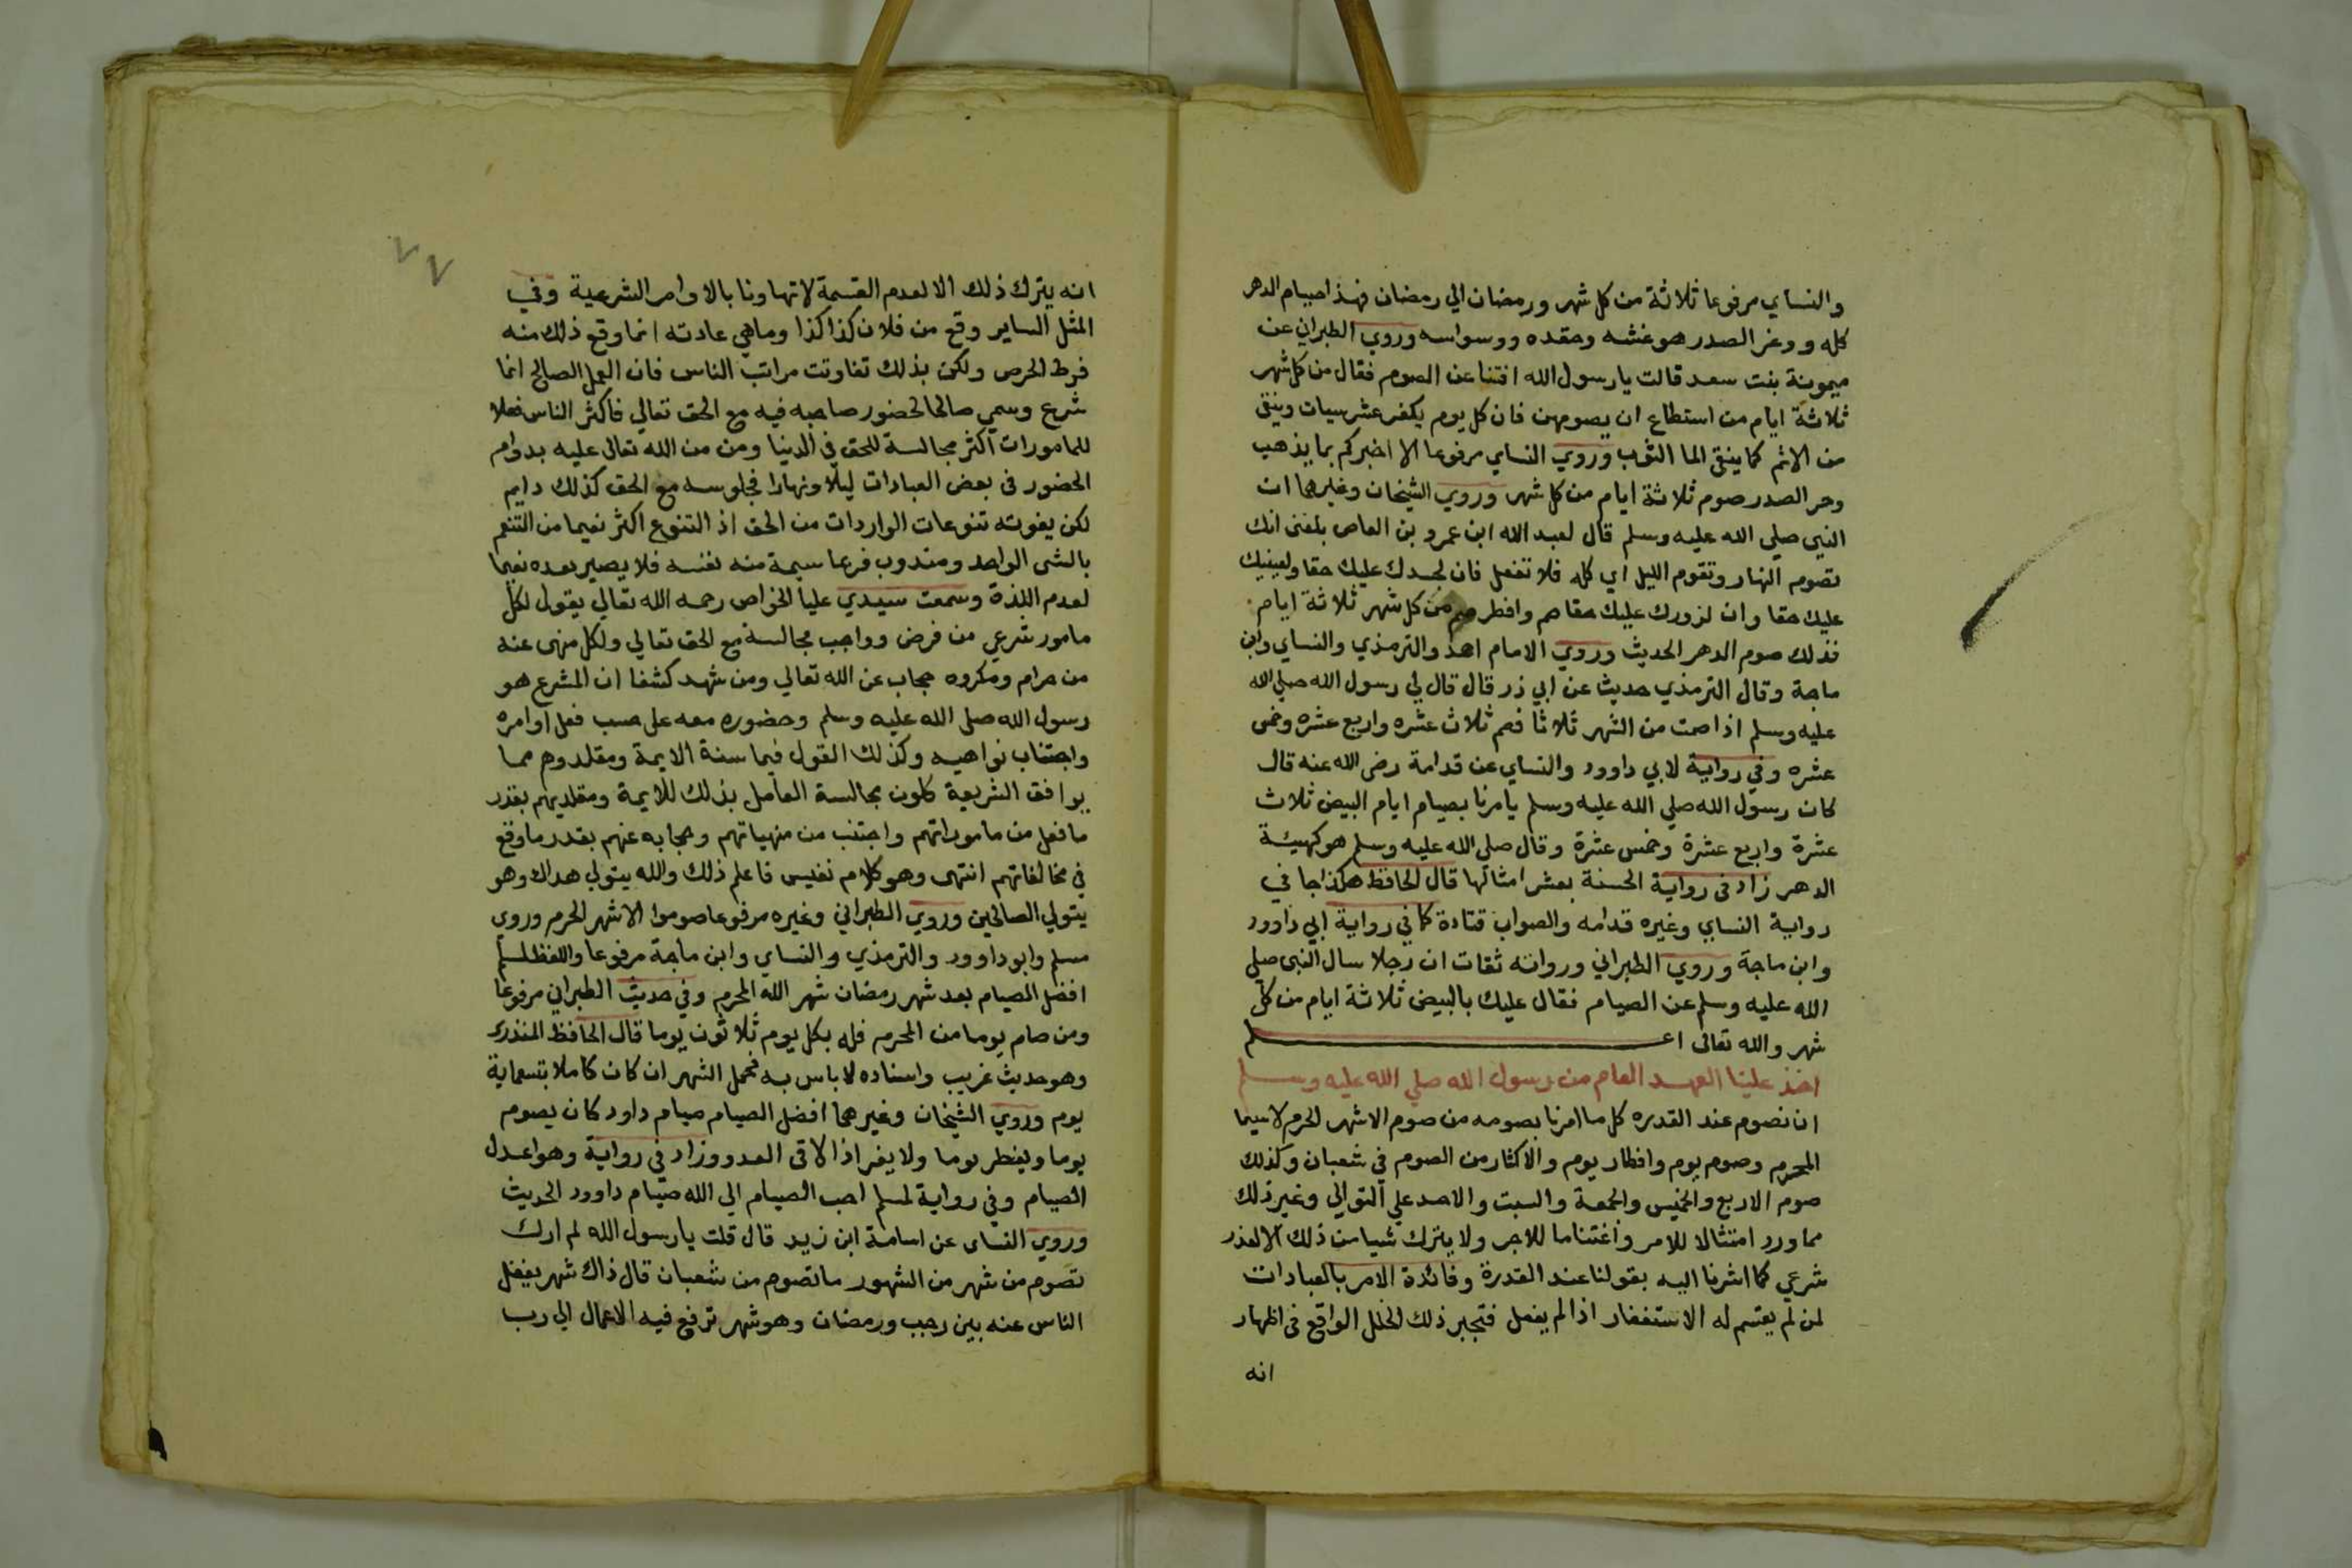 والنساي مرفوعا ثلاثة من كل شهر ورمضان الي رمضان فهذا صيام الدهر
كله ووغر الصدر هو غشه وحقده ووسواسه وروي الطبراني عن
ميمونة بنت سعد قالت يا رسول الله افتنا عن الصوم فقال من كل شهر
ثلاثة ايام من استطاع ان يصومهن فان كل يوم يكفر عشر سيات وينقي
من الاثم كما ينقي الما الثوب وروي النساي مرفوعا الا اخبركم بما يذهب
وحر الصدر صوم ثلاثة ايام من كل شهر وروي الشيخان وغيرهما ان
النبي صلي الله عليه وسلم قال لعبد الله ابن عمرو بن العاص بلغني انك
تصوم النهار وتقوم الليل اي كله فلا تفعل فان لجسدك عليك حقا ولعينيك
عليك حقا وان لزورك عليك حقا صم وافطر صم من كل شهر ثلاثة ايام
فذلك صوم الدهر الحديث وروي الامام احمد والترمذي والنساي وابن
ماجة وقال الترمذي حديث عن ابي ذر قال قال لي رسول الله صلي الله
عليه وسلم اذا صمت من الشهر ثلاثا فصم ثلاث عشره واربع عشره وخمس
عشره وفي رواية لابي داوود والنساي عن قدامة رضى الله عنه قال
كان رسول الله صلي الله عليه وسلم يامرنا بصيام ايام البيض ثلاث
عشرة واربع عشرة وخمس عشرة وقال صلي الله عليه وسلم هو كهيئة
الدهر زاد فى رواية الحسنة بعشر امثالها قال الحافظ هكذا جا في
رواية النساي وغيره قدامه والصواب قتادة كما في رواية ابي داوود
وابن ماجة وروي الطبراني ورواته ثقات ان رجلا سال النبى صلي
الله عليه وسلم عن الصيام فقال عليك بالبيض ثلاثة ايام من كل
شهر والله تعالى اعلم
اخذ علينا العهد العام من رسول الله صلي الله عليه وسلم
ان نصوم عند القدره كل ما امرنا بصومه من صوم الاشهر الحرم لاسيما
المحرم وصوم يوم وافطار يوم والاكثار من الصوم في شعبان وكذلك
صوم الاربع والخميس والجمعة والسبت والاحد علي التوالي وغير ذلك
مما ورد امتثالا للامر واغتناما للاجر ولا يترك شيا من ذلك الا لعذر
شرعي كما اشرنا اليه بقولنا عند القدرة وفائدة الامر بالعبادات
لمن لم يقسم له الاستغفار اذا لم يفعل فتجبر ذلك الخلل الواقع فى اظهار
انه
٧٧
انه يترك ذلك الا لعدم القسمة لا تهاونا بالاوامر الشرعية وفي
المثل الساير وقع من فلان كذا كذا وما هي عادته انما وقع ذلك منه
فرط الحرص ولكن بذلك تفاوتت مراتب الناس فان العمل الصالح انما
شرع وسمي صالحا لحضور صاحبه فيه مع الحق تعالي فاكثر الناس فعلا
للمامورات اكثر مجالسة للحق في الدنيا ومن من الله تعالى عليه بدوام
الحضور فى بعض العبادات ليلا ونهارا فجلوسه مع الحق كذلك دايم
لكن يفوته تنوعات الواردات من الحق اذ التنوع اكثر نعيما من التنعم
بالشى الواحد ومندوب فرعا سيمة منه نفسه فلا يصير بعده نعيما
لعدم اللذة وسمعت سيدي عليا الخواص رحمه الله تعالي يقول لكل
مامور شرعي من فرض وواجب مجالسة مع الحق تعالي ولكل منهى عنه
من حرام ومكروه حجاب عن الله تعالي ومن شهد كشفا ان المشرع هو
رسول الله صلى الله عليه وسلم وحضوره معه على حسب فعل اوامره
واجتناب نواهيه وكذلك القول فيما سنة الايمة ومقلدوهم مما
يوافق الشريعة كلون مجالسة العامل بذلك للايمة ومقلديهم بقدر
ما فعل من ماموراتهم واجتنب من منهياتهم وحجابه عنهم بقدر ما وقع
في مخالفاتهم انتهى وهو كلام نفيس فاعلم ذلك والله يتولي هداك وهو
يتولي الصالحين وروي الطبراني وغيره مرفوعا صوموا الاشهر الحرم وروي
مسلم وابو داوود والترمذي والنساي وابن ماجة مرفوعا واللفظ لمسلم
افضل الصيام بعد شهر رمضان شهر الله المحرم وفي حديث الطبراني مرفوعا
ومن صام يوما من المحرم فله بكل يوم ثلاثون يوما قال الحافظ المنذري
وهو حديث غريب واسناده لا باس به فجمل الشهر ان كان كاملا بتسعماية
يوم وروي الشيخان وغيرهما افضل الصيام صيام داود كان يصوم
يوما ويفطر يوما ولا يفر اذا لاقى العدو وزاد في رواية وهو اعدل
الصيام وفي رواية لمسلم احب الصيام الي الله صيام داوود الحديث
وروي النساى عن اسامة ابن زيد قال قلت يا رسول الله لم ارك
تصوم من شهر من الشهور ما تصوم من شعبان قال ذاك شهر يغفل
الناس عنه بين رجب ورمضان وهو شهر ترفع فيه الاعمال الي رب